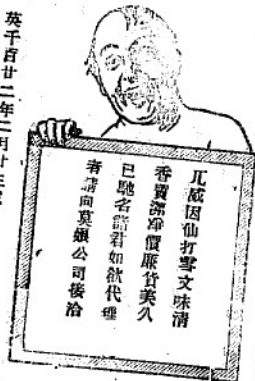 兀威因仙打雪文味清
香質潔净價廉貨美久
已馳名諸君如欲代理
者請向莫娘公司接洽
英千百廿二年二月廿